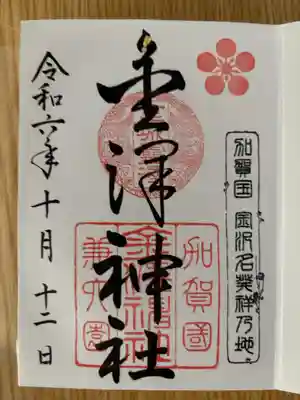 加賀国 金沢名発祥乃地
金澤神社
加賀國
金澤神社
兼六園
令和六年十月十二日